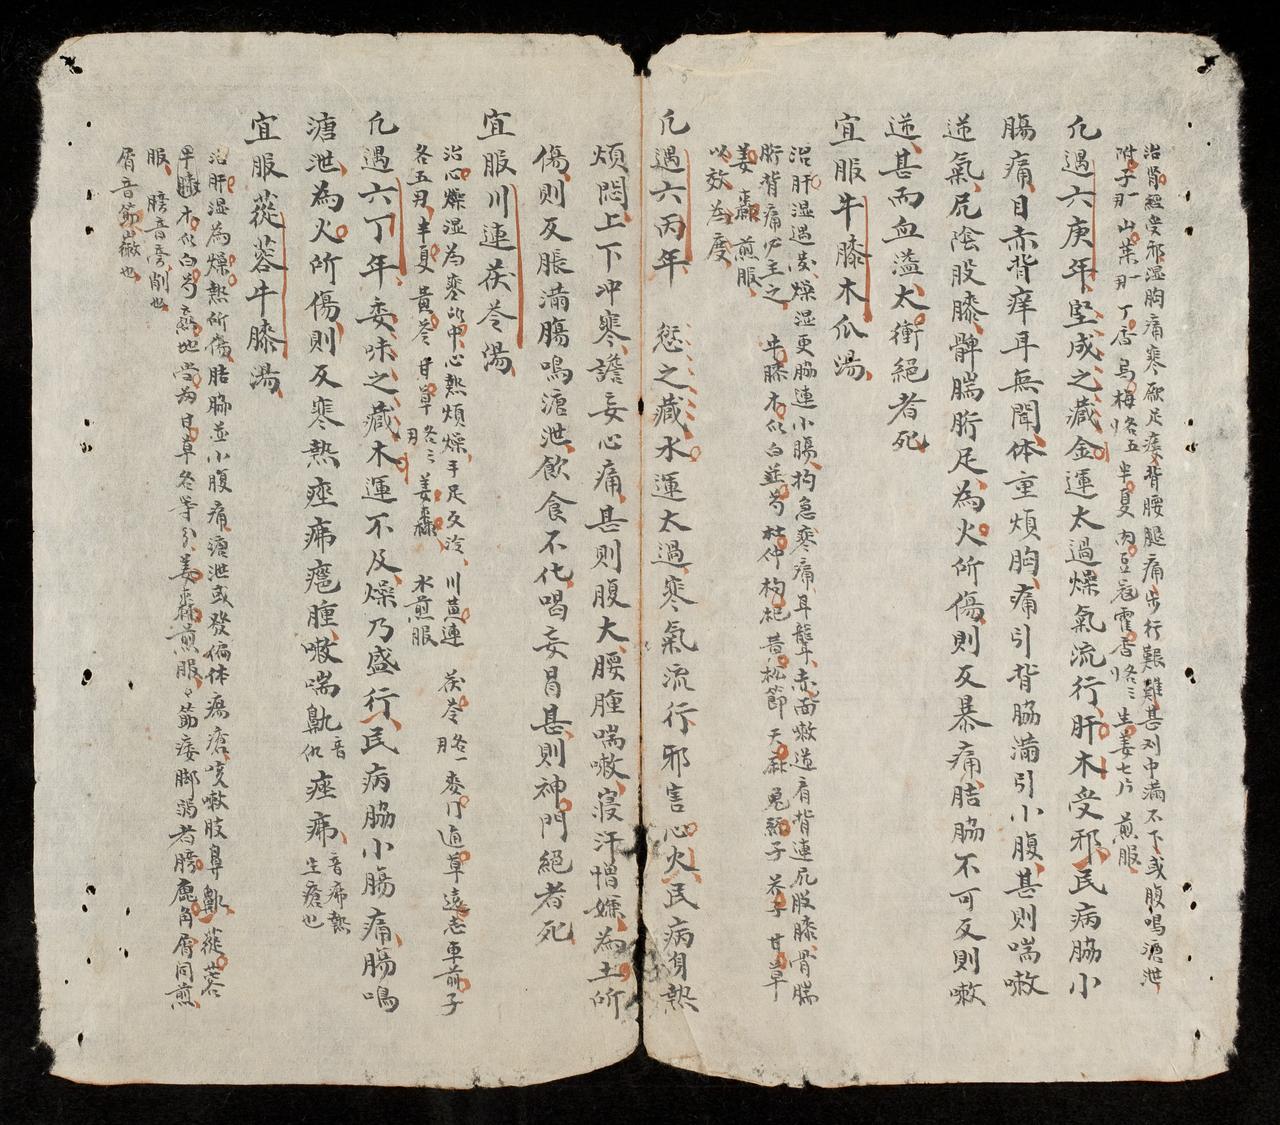 治腎經受邪湿胸痛寒厥足痿背腰腿痛步行艱難甚則中滿不下或腹鳴溏泄
附子一 山茱一 丁香 烏梅各五 半夏 肉豆蔻 霍香各三 生姜七片 煎服
凢遇六庚年堅成之藏金運太過燥氣流行肝木受邪民病脇小
腸痛目赤背痒耳無聞体重煩胸痛引背脇滿引小腹甚則喘嗽
逆氣尻陰股膝髀腨胻足為火所傷則反暴痛胠脇不可反則嗽
逆甚而血溢太衝絕者死
宜服牛膝木瓜湯
治肝湿遇发燥湿更脇連小腸拘急寒痛耳聾赤面嗽逆肩背連尻股膝骨腨
胻背痛必主之 牛膝 木瓜 白芷 芍 杜仲 枸杞 黄松節 天麻 兔絲子 甘草
姜棗煎服
以效為度
凢遇六丙年 愆之藏水運太過寒氣流行邪害心火民病身熱
煩悶上下冲寒譫妄心痛甚則腹大腰腫喘嗽寢汗憎嫌為土所
傷則反脹滿腸鳴溏泄飲食不化喝妄冒甚則神門絕者死
宜服川連茯苓湯
治心燥湿為寒所中心熱煩燥手足反冷 川黄連 茯苓各一 麥门 通草 遠志 車前子
各五 半夏 黄苓 甘草各三 姜棗 水煎服
凢遇六丁年委咊之藏木運不及燥乃盛行民病脇小腸痛腸鳴
溏泄為火所傷則反寒熱痤疿瘡腫嗽喘鼽音仇痤疿音疿熱生瘡也
宜服蓯蓉牛膝湯
治肝湿為燥熱所傷胠脇並小腹痛溏泄或發偏体瘍瘡咳嗽肢鼻鼽 蓯蓉
牛膝 木瓜 白芍 熟地 当为 甘草各等分 姜棗煎服 筋痿脚弱者 膀鹿角屑同煎
服 膀音旁削也
屑音節嶶也